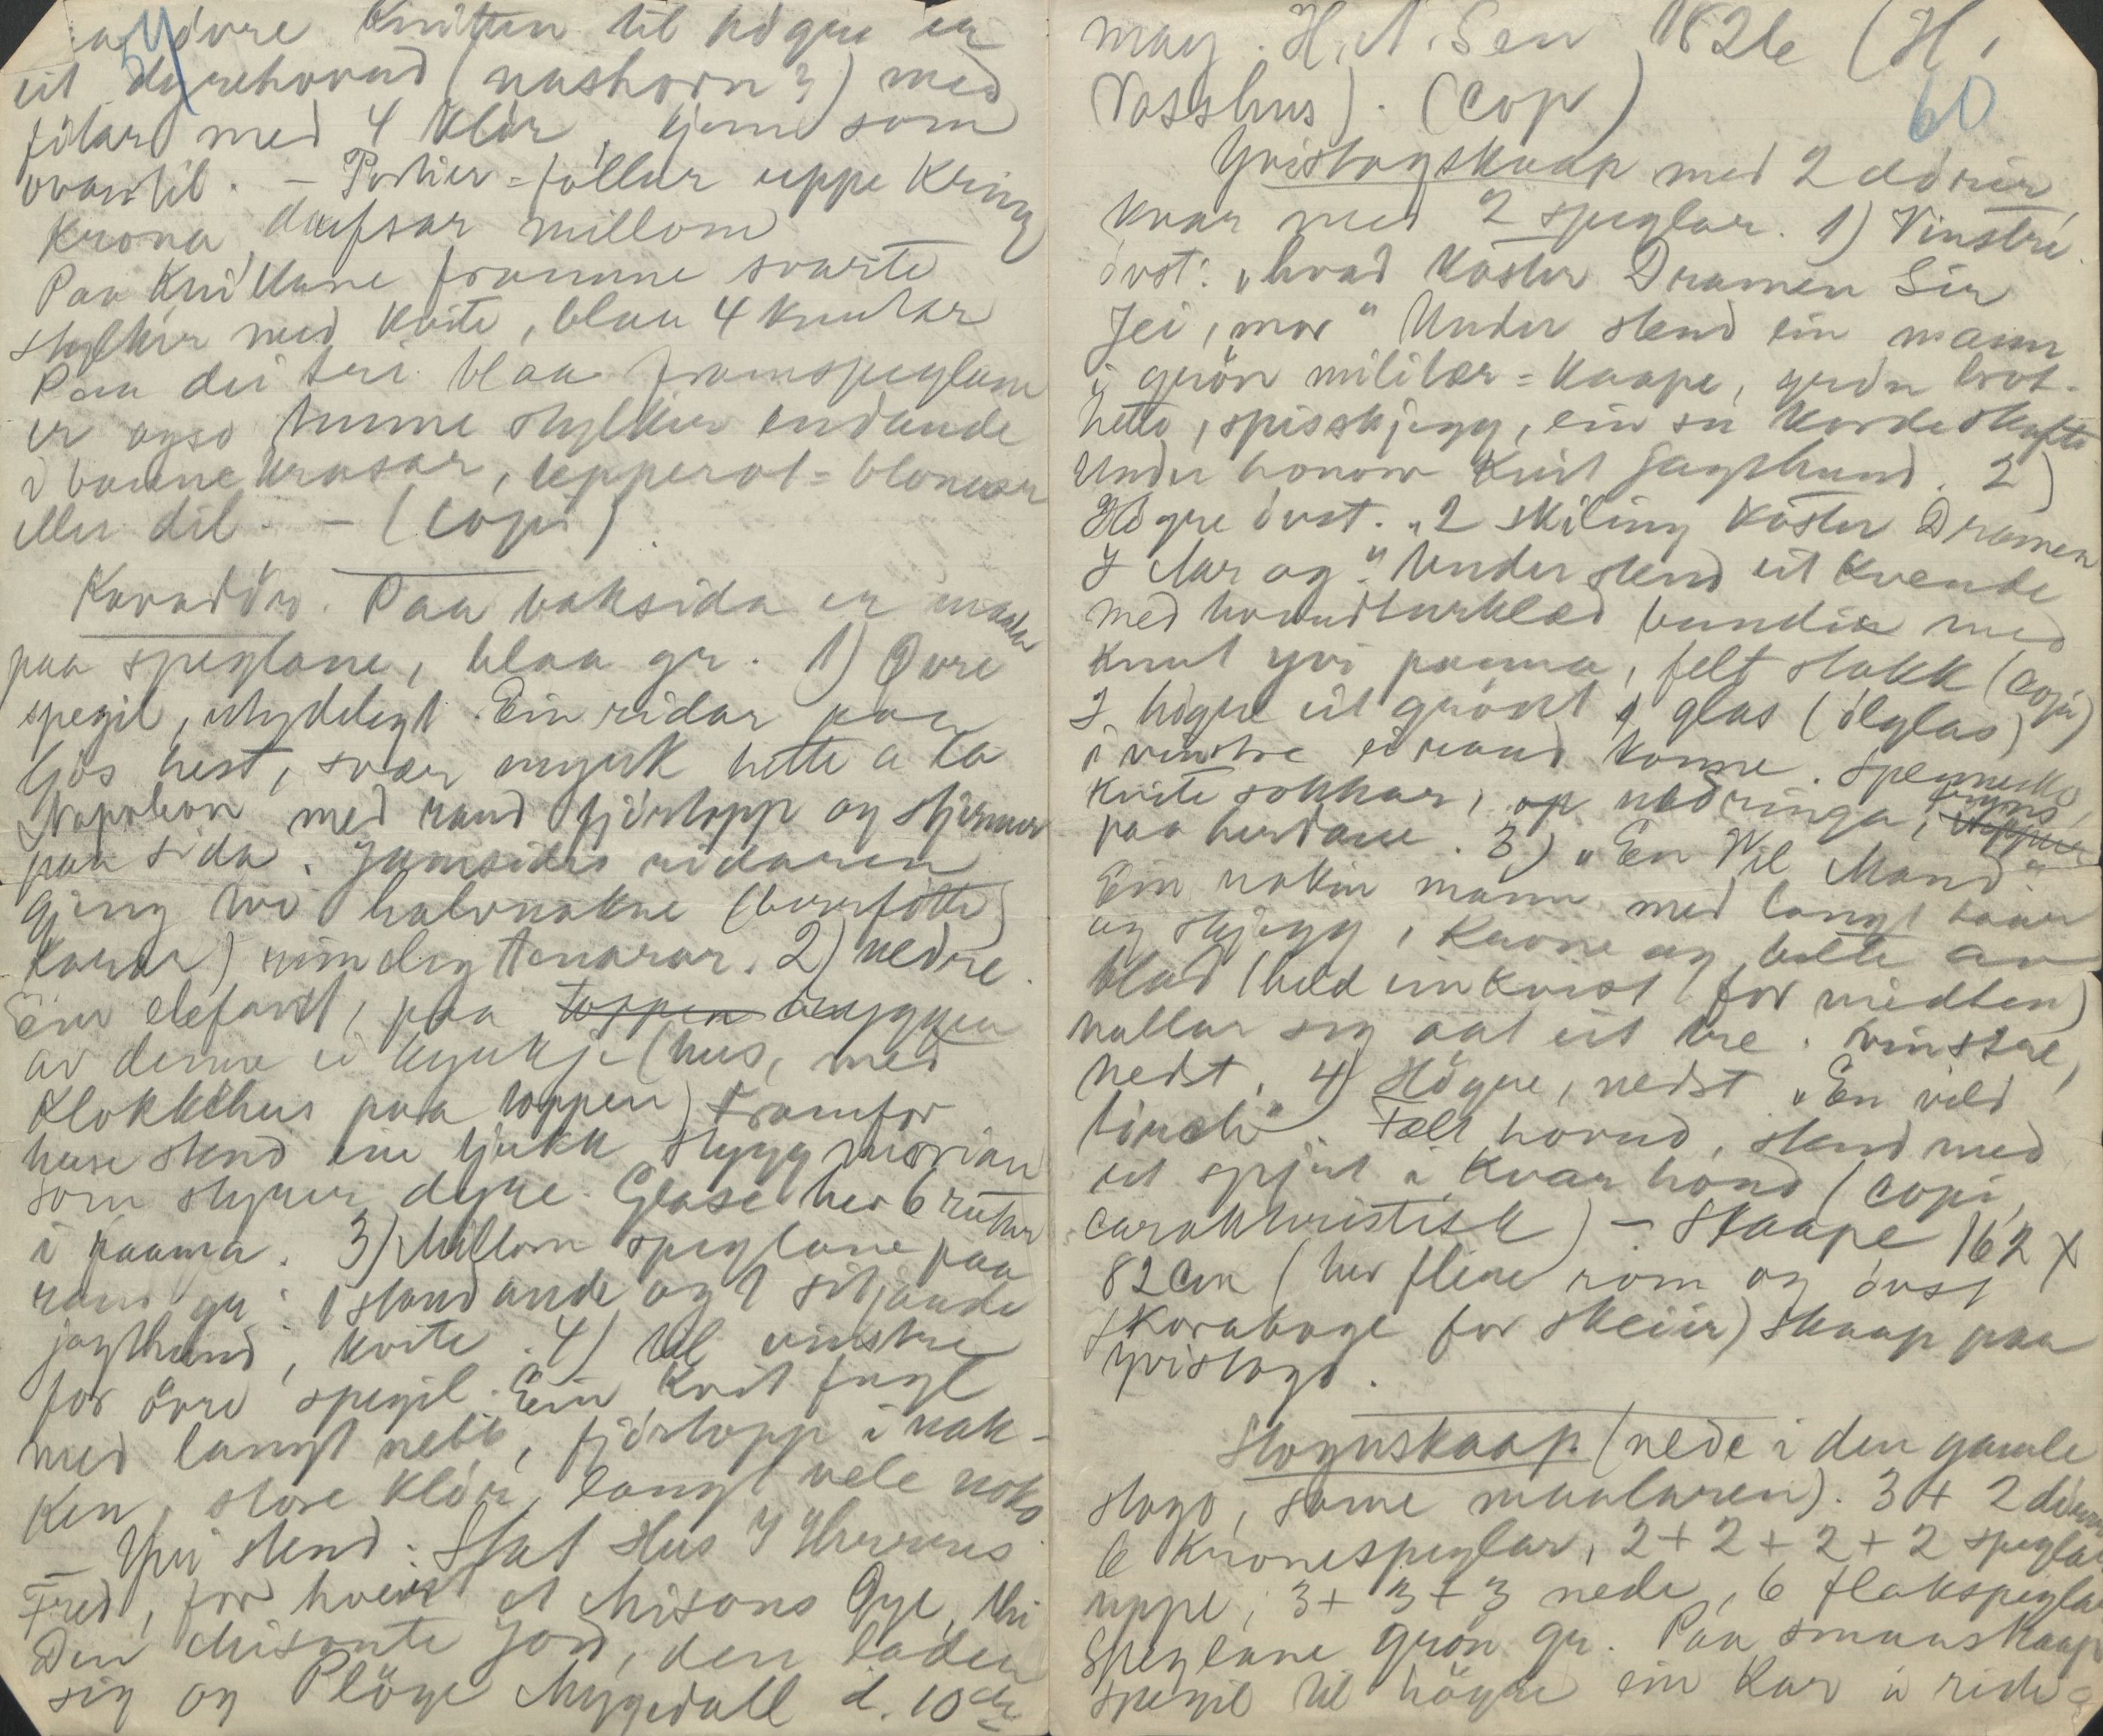 59
övre knitten til högre er
eit dyrehovud (nashorn?) med
fötar med 4 klör, kjem som
ovantil. - Portier-föllur uppe kring
Krona, dufsar millom
Paa knittane framme svarte
stylkir med kvite, blaa 4 knutar
Paa dei tri blaa framspeglane
er ogso tunne stylkir endande
i baane krusar, tepperot-blomar
eller dil. - (copi).
Kovadör. Paa baksida er maala
paa speglane, blaa gr. 1) Övre
spegil, utydelegt. Ein ridar paa
ljos hest, svær mjuk hette a la
Napoleon med raud fjörtopp og stjernur
paa sida. Jamsides ridaren
gjeng tvo halvnakne (berrfötte)
karar) rimeleg tenarar. 2) nedre.
Ein elefant, paa toppen ryggen
av denne ei kyrkje (hus, med
Klokkehus paa toppen) Framfor
huse stend ein tjukk stygg morian
som styrer dyre. Glase hev 6 rutur
i raama. 3) Millom speglane paa
raud gr: 1 standande og 1 sitjande
jagthund, kvite. 4) til vinstre
for övre spegil. Ein kvit fugl
med langt nebb, fjörtopp i nak-
ken, store klör, langt vele noko
- Yvi stend: Stat Hus I Herrens
Fred, for hvert et Misons Öye, thi
Den Misonte Jord, den laden
sig og Plöye Myyedall d. 10de
may. H. N. Sen 1826 (H.
Vasshus). (Cop)
60
Yvistogskaap med 2 dörir,
kvar med 2 speglar. 1) Vinstre
övst: "hvad koster Dramen Sir
Jei, mor" Under stend ein mann
i grön militær-kaape, grön brot-
hette, spisskjegg, ein ser kordeskafte
Under honom kvit Jagthund. 2)
Högre övst. "2 skiling koster Dramen
I Mar og." Under stend eit kvende
med hovudturklæd bundie med
knut yvi panna, felt stakk (copi)
I högre eit grönt glas (ölglas)
i vinstre ei raud konne. Spennesko,
kvite sokkar, nedringa, kryns,
paa herdane. 3) "En Vil Mand".
Ein nakin mann med langt haar
og skjegg, krone og belte av
blad (held ein kvist for midten)
hallar seg aat eit tre. Vinstre,
nedst. 4) Högre, nedst "En vild
. Fælt hovud, stend med
eit spjut i kvar hond (copi,
carakteristisk) - Skaape 162 X
82 Cm (hev fleire rom og övst
skoraboge for skeiir) skaap paa
Yvistogo.
Stoguskaap (nede i den gamle
stogo, same maalaren). 3 + 2 dörir
6 Kronespeglar, 2 + 2 + 2 + 2 speglar
uppe, 3 + 3 + 3 nede, 6 flakspeglar
Speglane grön gr. Paa smaaskaap
spegil til högre ein kar å ride